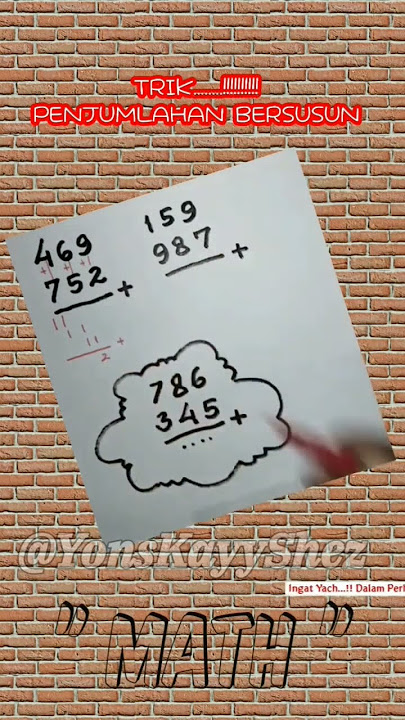 TRIK.......!!!!!!!!!!
PENJUMLAHAN BERSUSUN
469
752 +
11
1 1
11
2 +
159
987 +
786
345 +
....
@YonsKayyShez
Ingat Yach...!! Dalam Perl
" MATH "